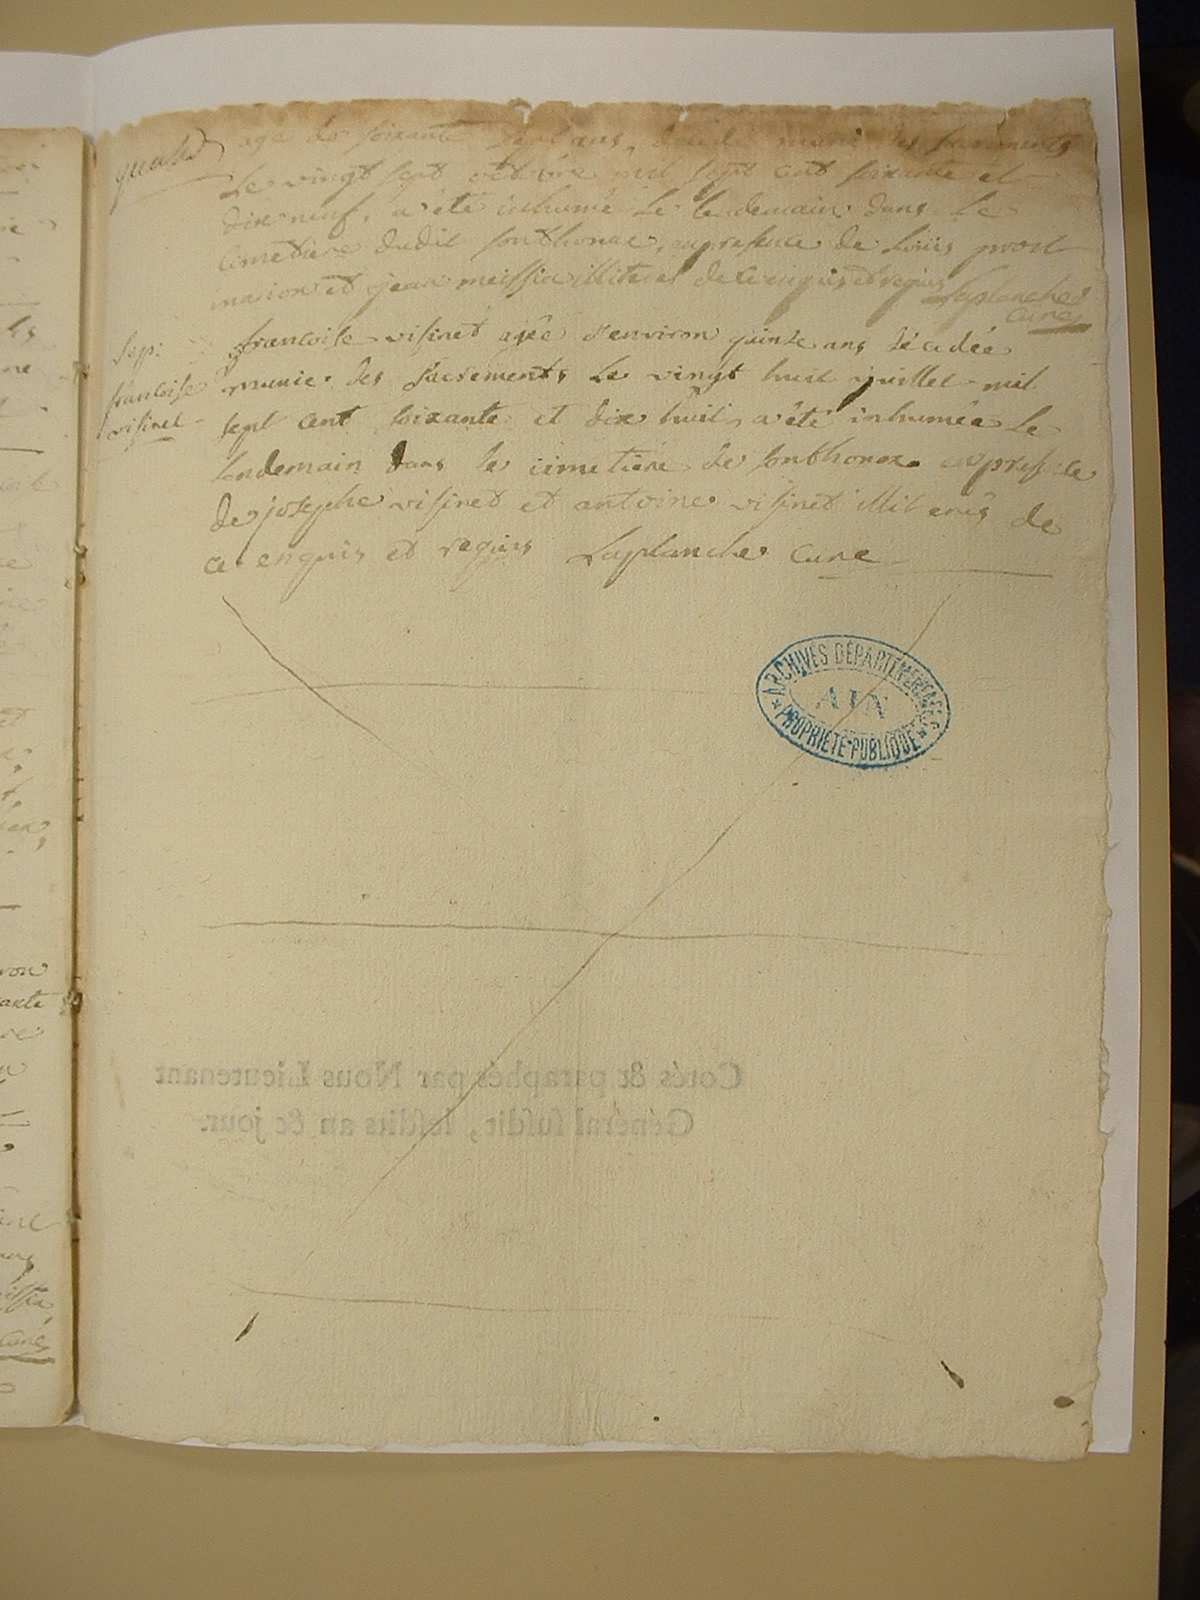 agé de soixante sept ans, decedé muni des sacrements
Le vingt sept octobre mil sept cent soixante et
dix neuf, a été inhumé le lendemain dans le
cimetiere dudit sonthonax, en presence de Louis prost
maion et jean meissia illiterés de ce enquis et requis Laplanche
curé
Sep:
francoise
visinet
francoise visinet agée d'environ quinze ans décedée
munie des sacrements le vingt huit juillet mil
sept cent soixante et dix huit, a été inhumée le
lendemain dans le cimetiere de sonthonax en presence
de josephe visinet et antoine visinet illiterés de
ce enquis et requis Laplanche curé
ARCHIVES DÉPARTEMENTALES
AIN
PROPRIÉTÉ PUBLIQUE
Cotés & paraphés par Nous Lieutenant
Général susdit, lesdits an & jour.